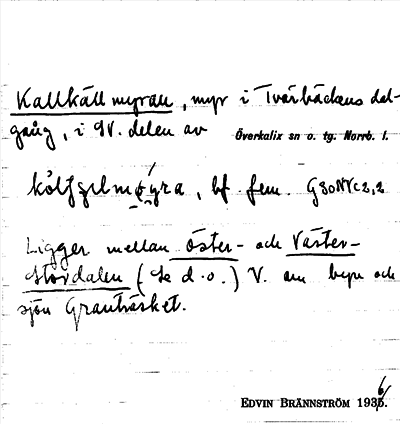 Kallkällmyran, myr i Tvärbäckens dal-
gång, i NV. delen av Överkalix sn o. tg. Norrb. l.
bf. fem. G30NVc2,2
Ligger mellan Öster- och Väster-
Stordalen (se d. o.) V. om byn och
sjön Granträsket.
EDVIN BRÄNNSTRÖM 1936.